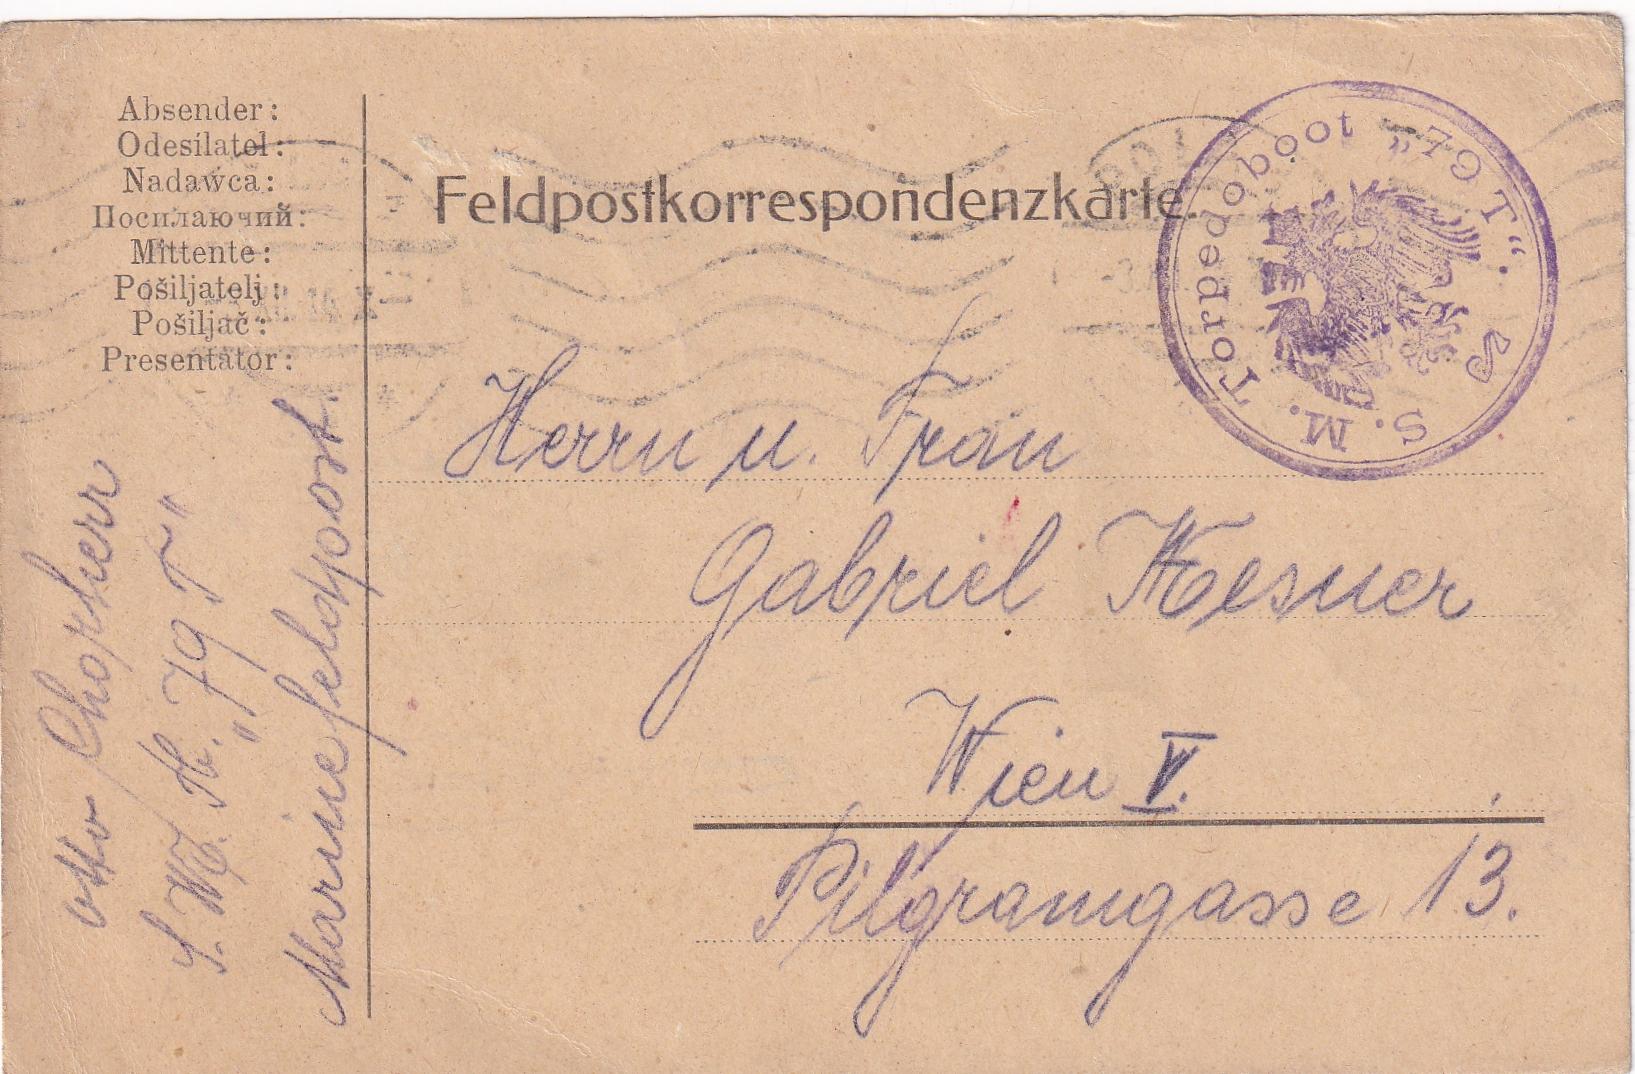 Absender:
Odesílatel:
Nadawca:
Посилаючий:
Mittente:
Pošiljatelj:
Pošiljač:
Presentator:
Feldpostkorrespondenzkarte.
S. M. Torpedoboot „79 T“.
POLA
Herrn u. Frau
Gabriel
Wien V.
Pilgramgasse 13.
Otto Chorherr
S. M. B. „79 T“
Marinefeldpost.